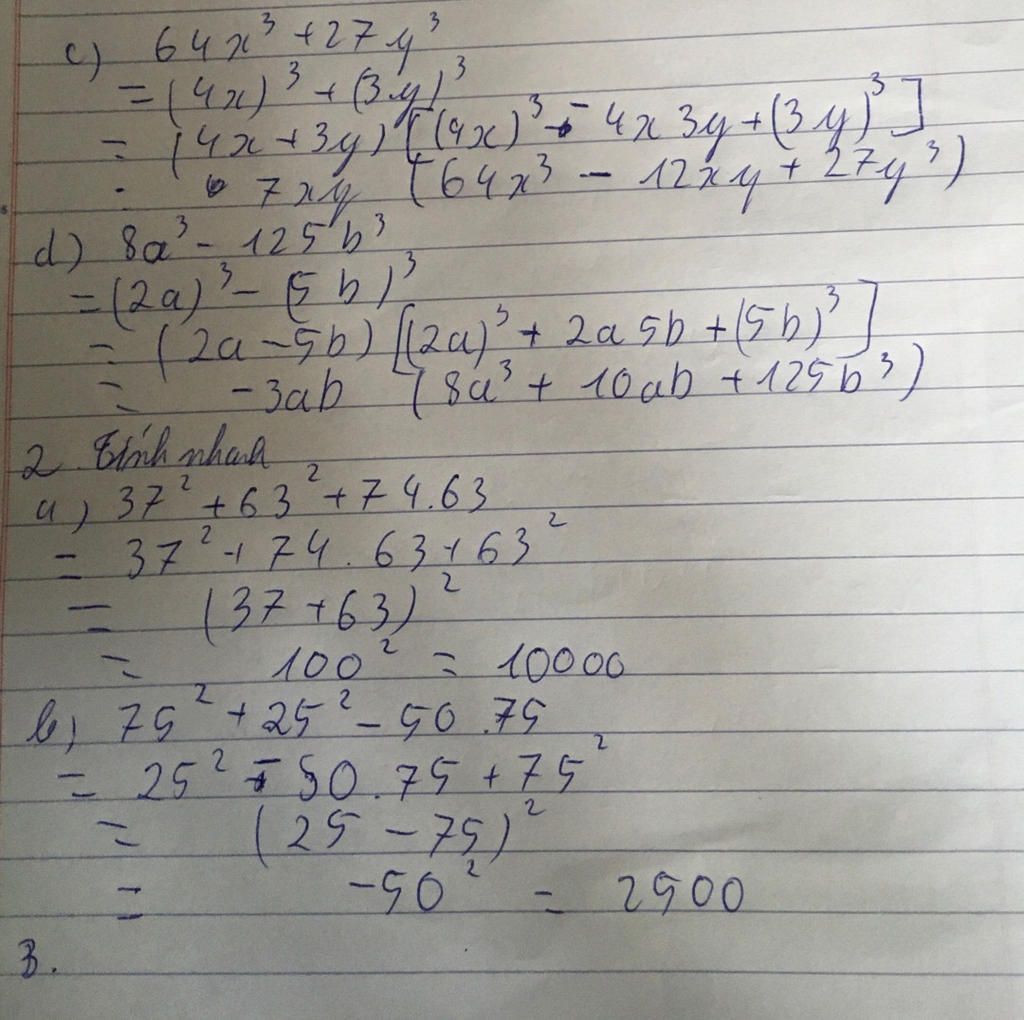 c) 64x³ + 27y³
= (4x)³ + (3y)³
= (4x + 3y) [(4x)³ - 4x 3y + (3y)³]
= 7xy (64x³ - 12xy + 27y³)
d) 8a³ - 125b³
= (2a)³ - (5b)³
= (2a - 5b) [(2a)³ + 2a5b + (5b)³]
= -3ab (8a³ + 10ab + 125b³)
2. Tính nhanh
a) 37² + 63² + 74.63
= 37² + 74.63 + 63²
= (37 + 63)²
= 100² = 10000
b) 75² + 25² - 50.75
= 25² - 50.75 + 75²
= (25 - 75)²
= -50² = 2500
3.